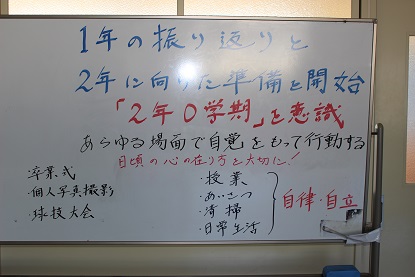 1年の振り返りと
2年に向けた準備を開始
「2年0学期」を意識
あらゆる場面で自覚をもって行動する
日頃の心の在り方を大切に!
・卒業式
・個人写真撮影
・球技大会
・授業
・あいさつ
・清掃
・日常生活
自律・自立